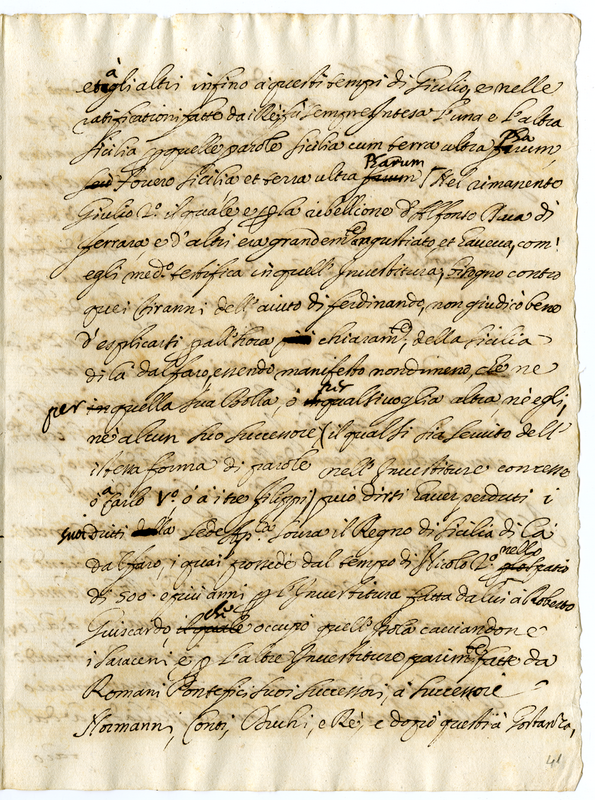 et à gli altri infino à questi tempi di Giulio, e nelle
ratificationi fatte da illei fù sempre intesa l'una e l'altra
Sicilia p quelle parole Sicilia cum terra ultra Farum, Ba
seu Fovero Sicilia et terra ultra farum Barum Nel rimanente
Giulio 2º. il quale e p la ribellione d'Alfonso Duca di
Ferrara e d'altri era grandem.te angustiato et haveva, com'
egli med.º testifica in quell'Investitura, bisogno contro
quei tiranni dell'aiuto di Ferdinando, non giudicò bene
d'esplicarsi p all'hora chiaram.te, della Sicilia
di là dal faro, essendo manifesto nondimeno, che ne
per in quella sua Bolla, ò per qualsivoglia altra, nè egli,
nè alcun suo successore (il qual si sia servito dell'
istessa forma di parole nell'Investiture concesse
ò à Carlo Vº. ò à i tre Filippi) può dirsi haver perduti i
suoi dritti della Sede Ap.ca sovra il Regno di Sicilia di là
dal faro, i quai possedè dal tempo di Nicolò 2º. nello spatio
di 500. e più anni p l'Investitura fatta da lui à Roberto
Guiscardo, il quale che occupò quell'Isola cacciandone
i Saraceni e p l'altre Investiture parim.te fatte da
Romani Pontefici suoi successori, à successori
Normanni, Conti, Duchi, e Rè, e dopò questi à Gostanza,
41